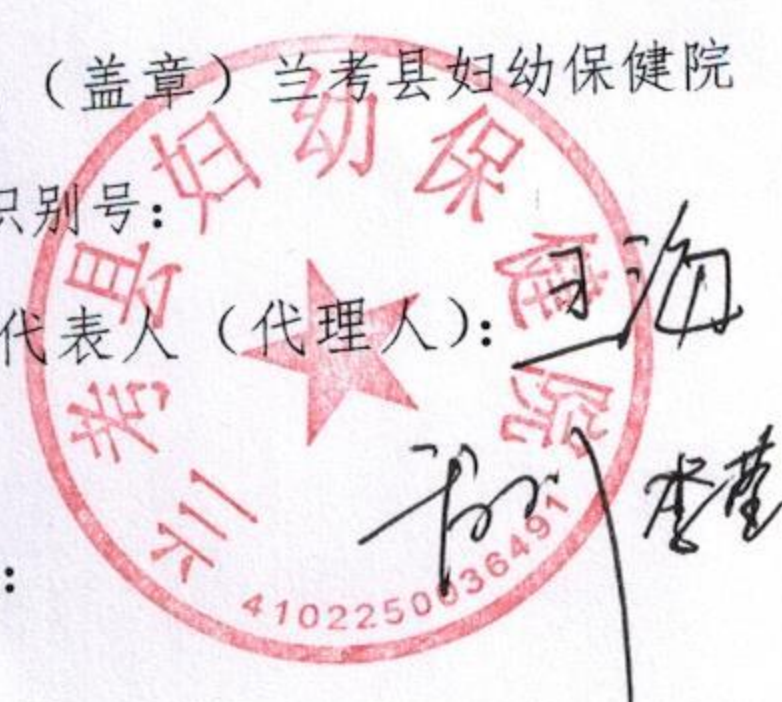 （盖章）兰考县妇幼保健院
识别号：
代表人（代理人）：
兰考县妇幼保健院
4102250036491
：